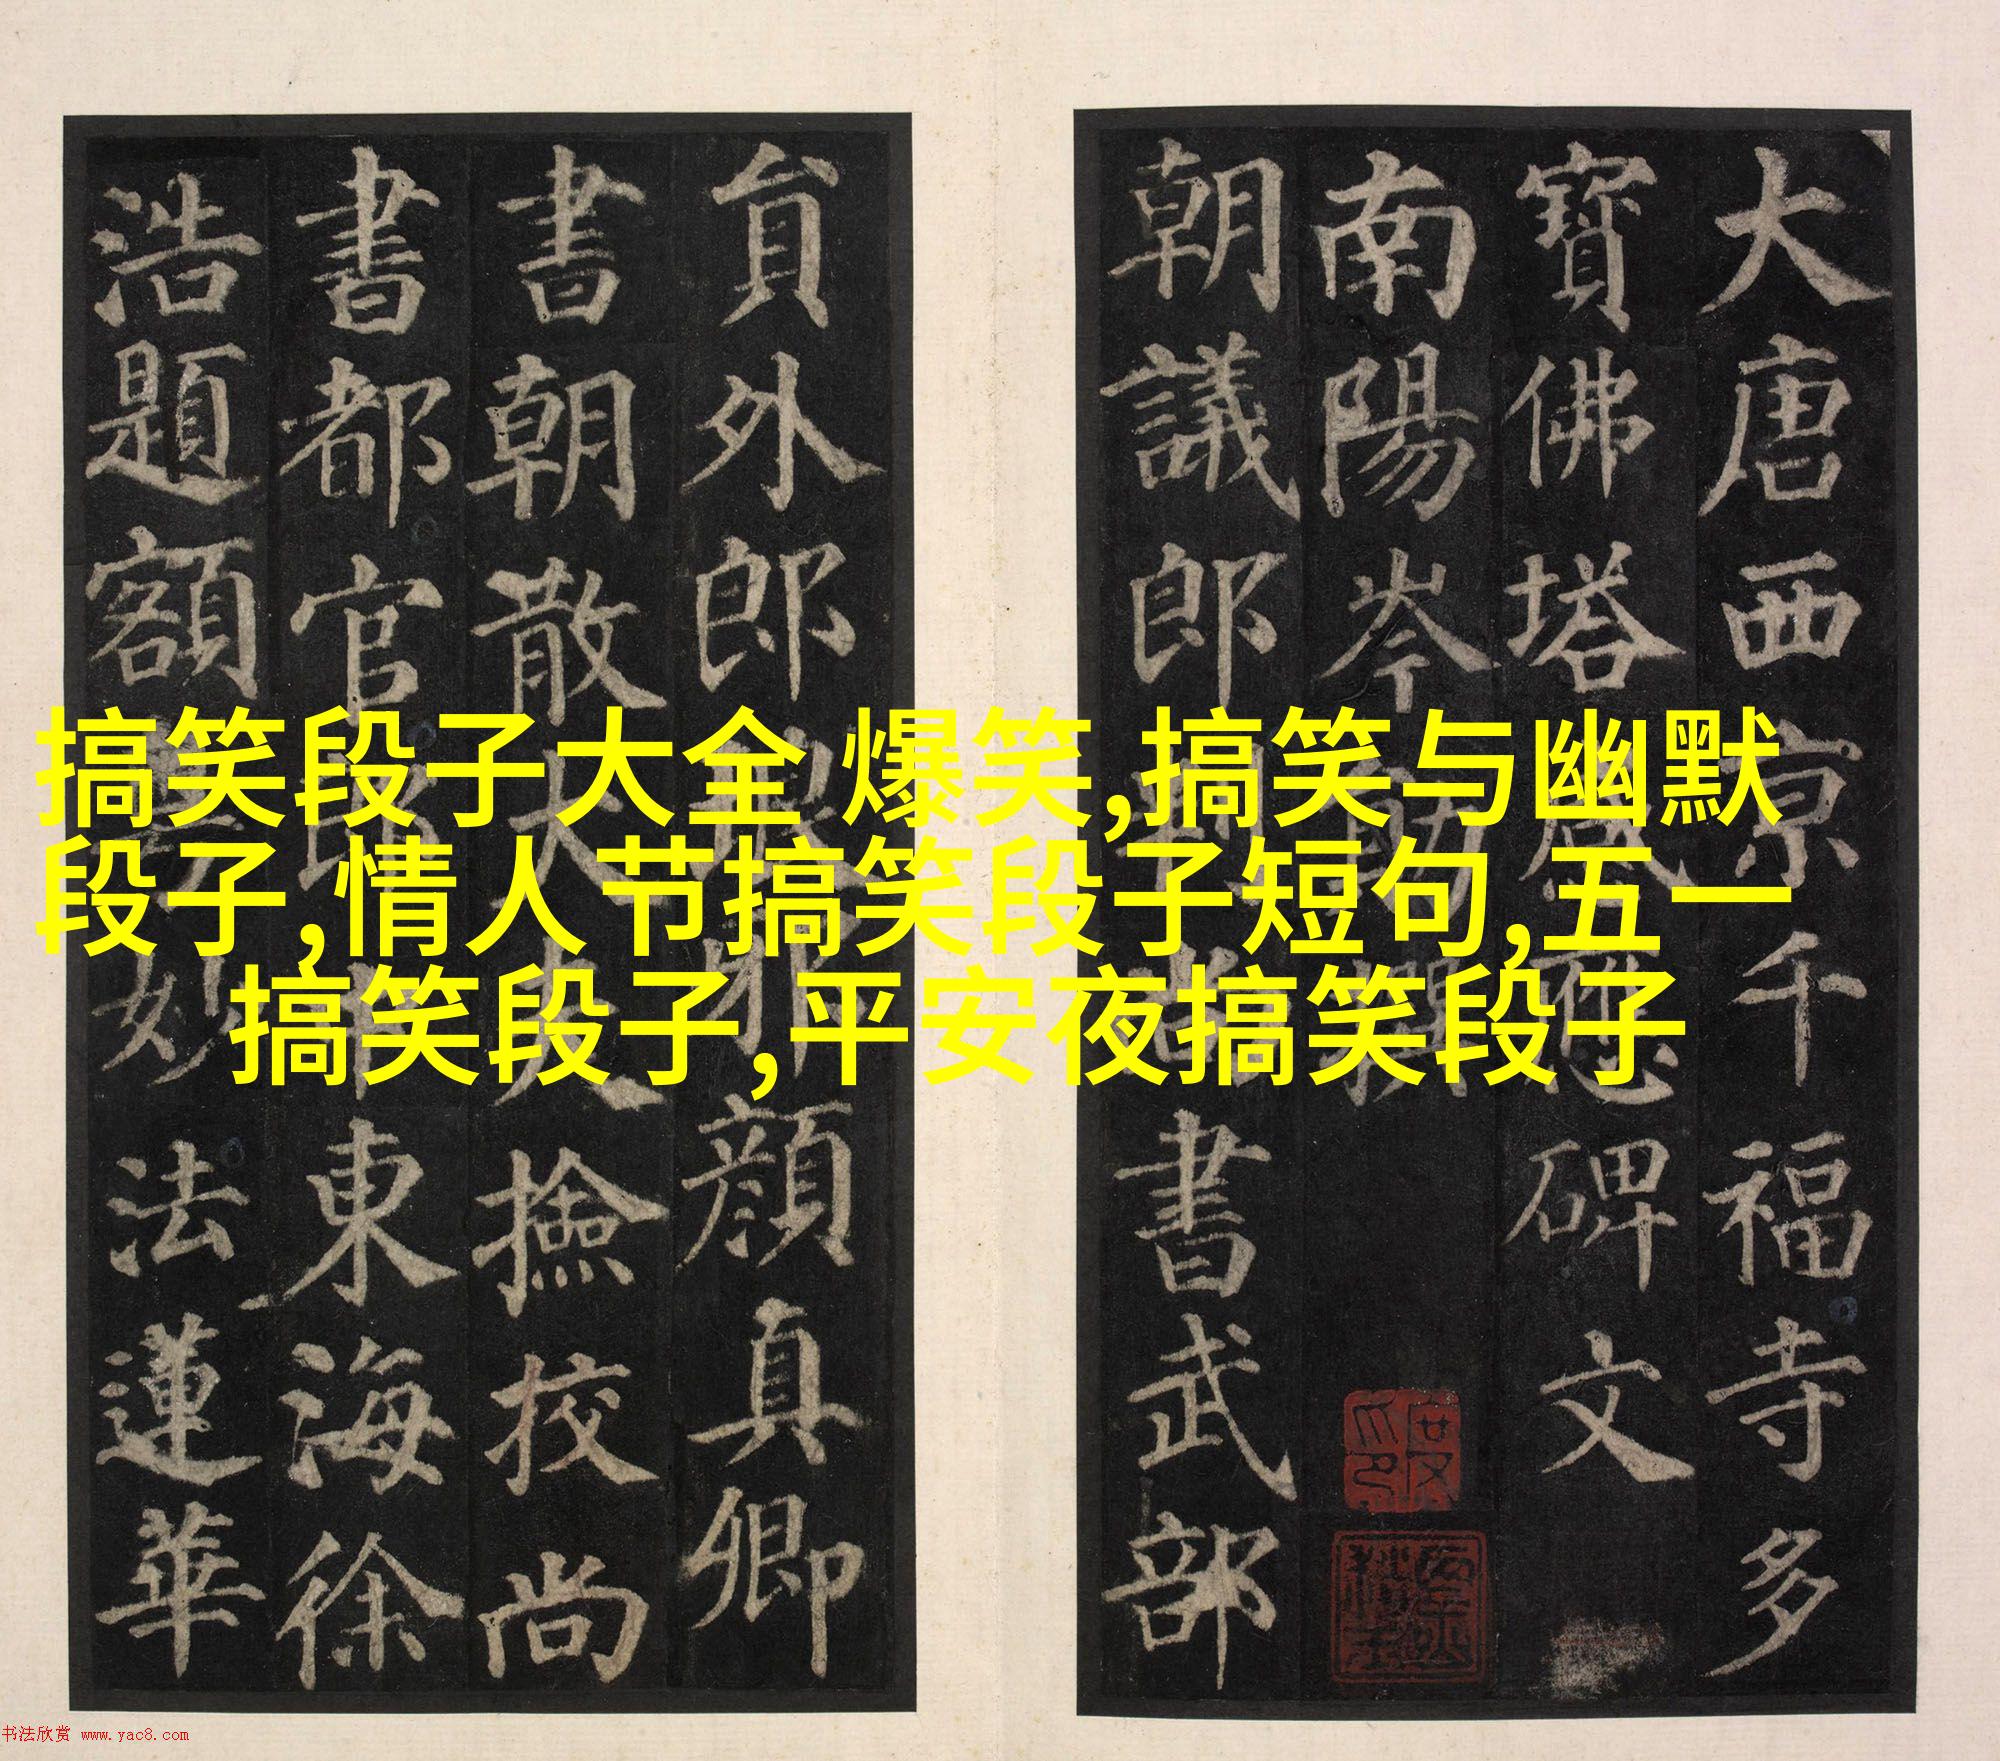 大唐西京千福寺多
寶佛塔感應碑文
南陽岑勛撰
朝議郎判尚書武部
貟外郎琅耶顏真卿
書朝散大夫撿校尚
書都官郎中東海徐
浩題額妙法蓮華
搞笑段子大全 爆笑,搞笑与幽默
段子,情人节搞笑段子短句,五一
搞笑段子,平安夜搞笑段子
书法欣赏 www.yac8.com